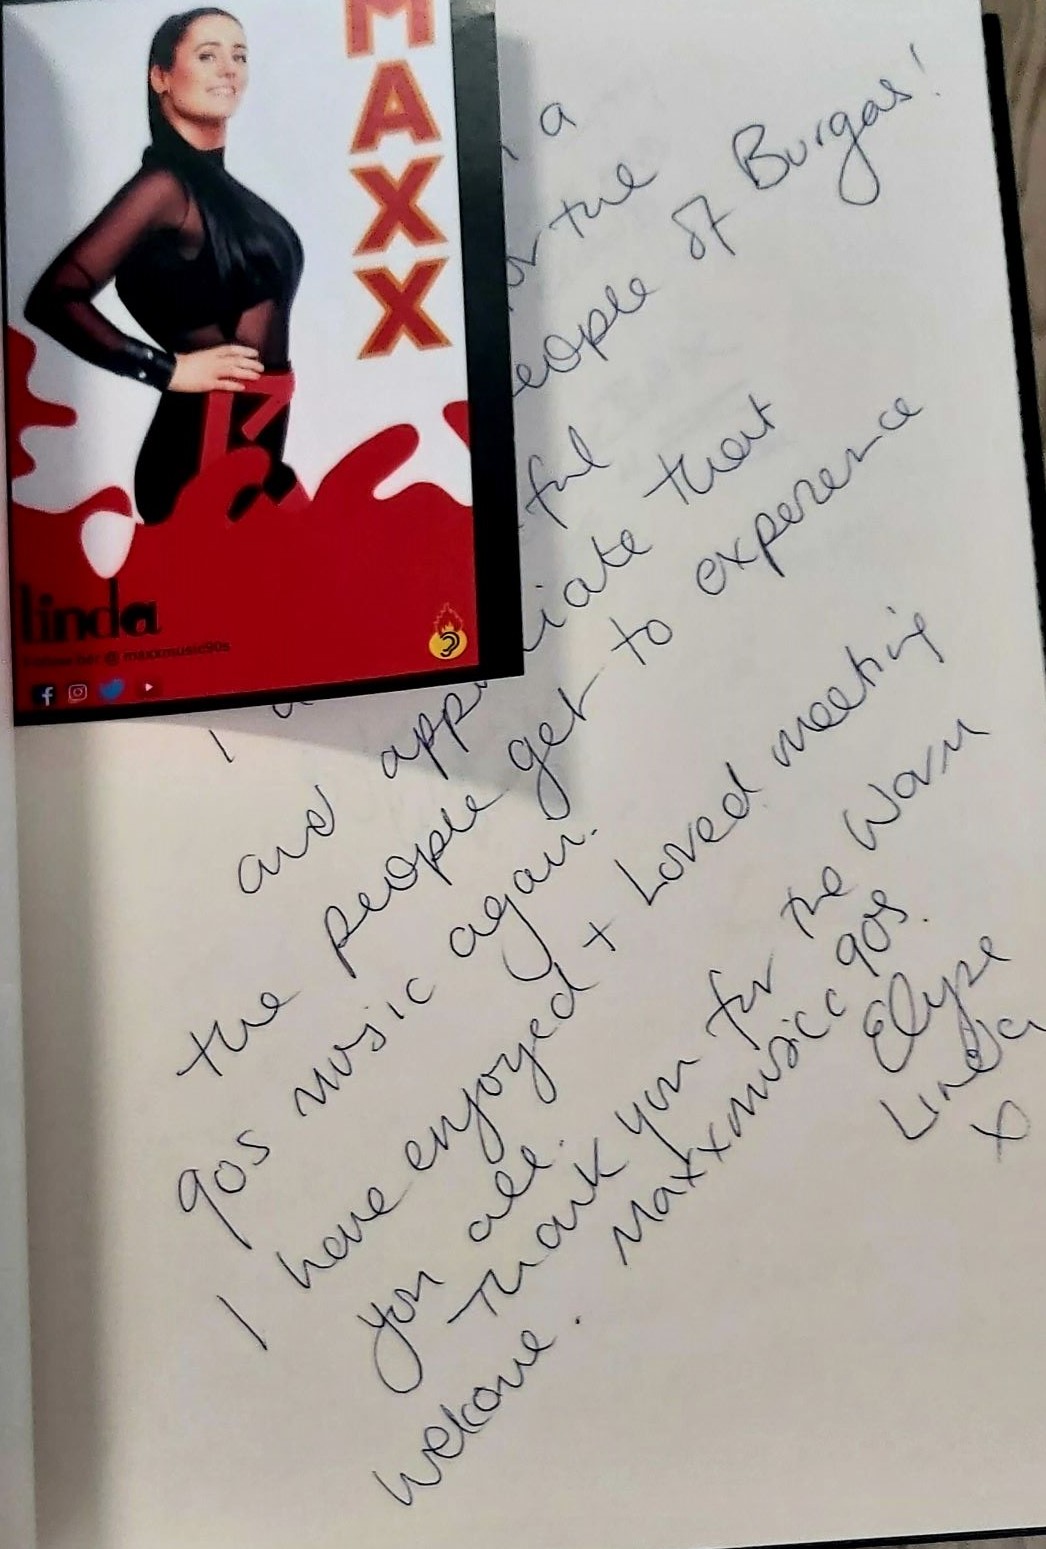 MAXX
linda
@ maxxmusic90s
a
for the
people of Burgas!
ful
and appreciate that
the people get to experence
90s music again.
I have enjoyed + Loved meeting
you all.
Thank you for the warm
welcome.
Maxxmusicc 90s.
Elyse
Linda
X